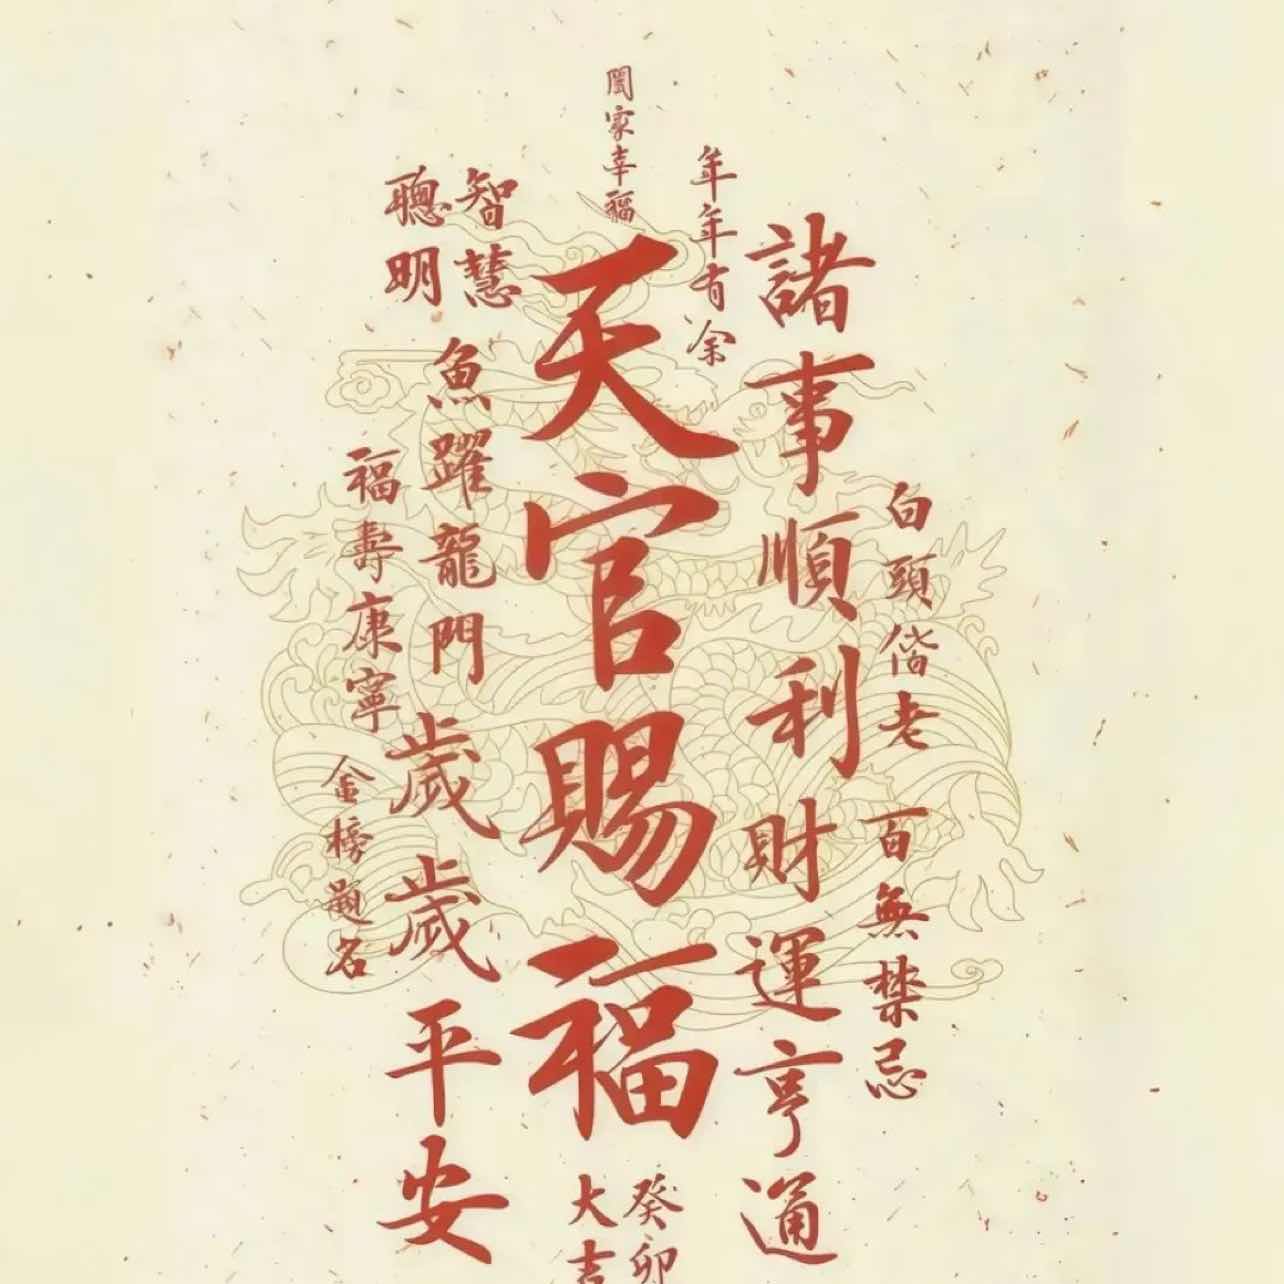 闔家幸福
年年有余
諸事順利財運亨通
白頭偕老
百無禁忌
天官賜福
智慧
聰明
魚躍龍門
福壽康寧
歲歲平安
金榜題名
癸卯
大吉